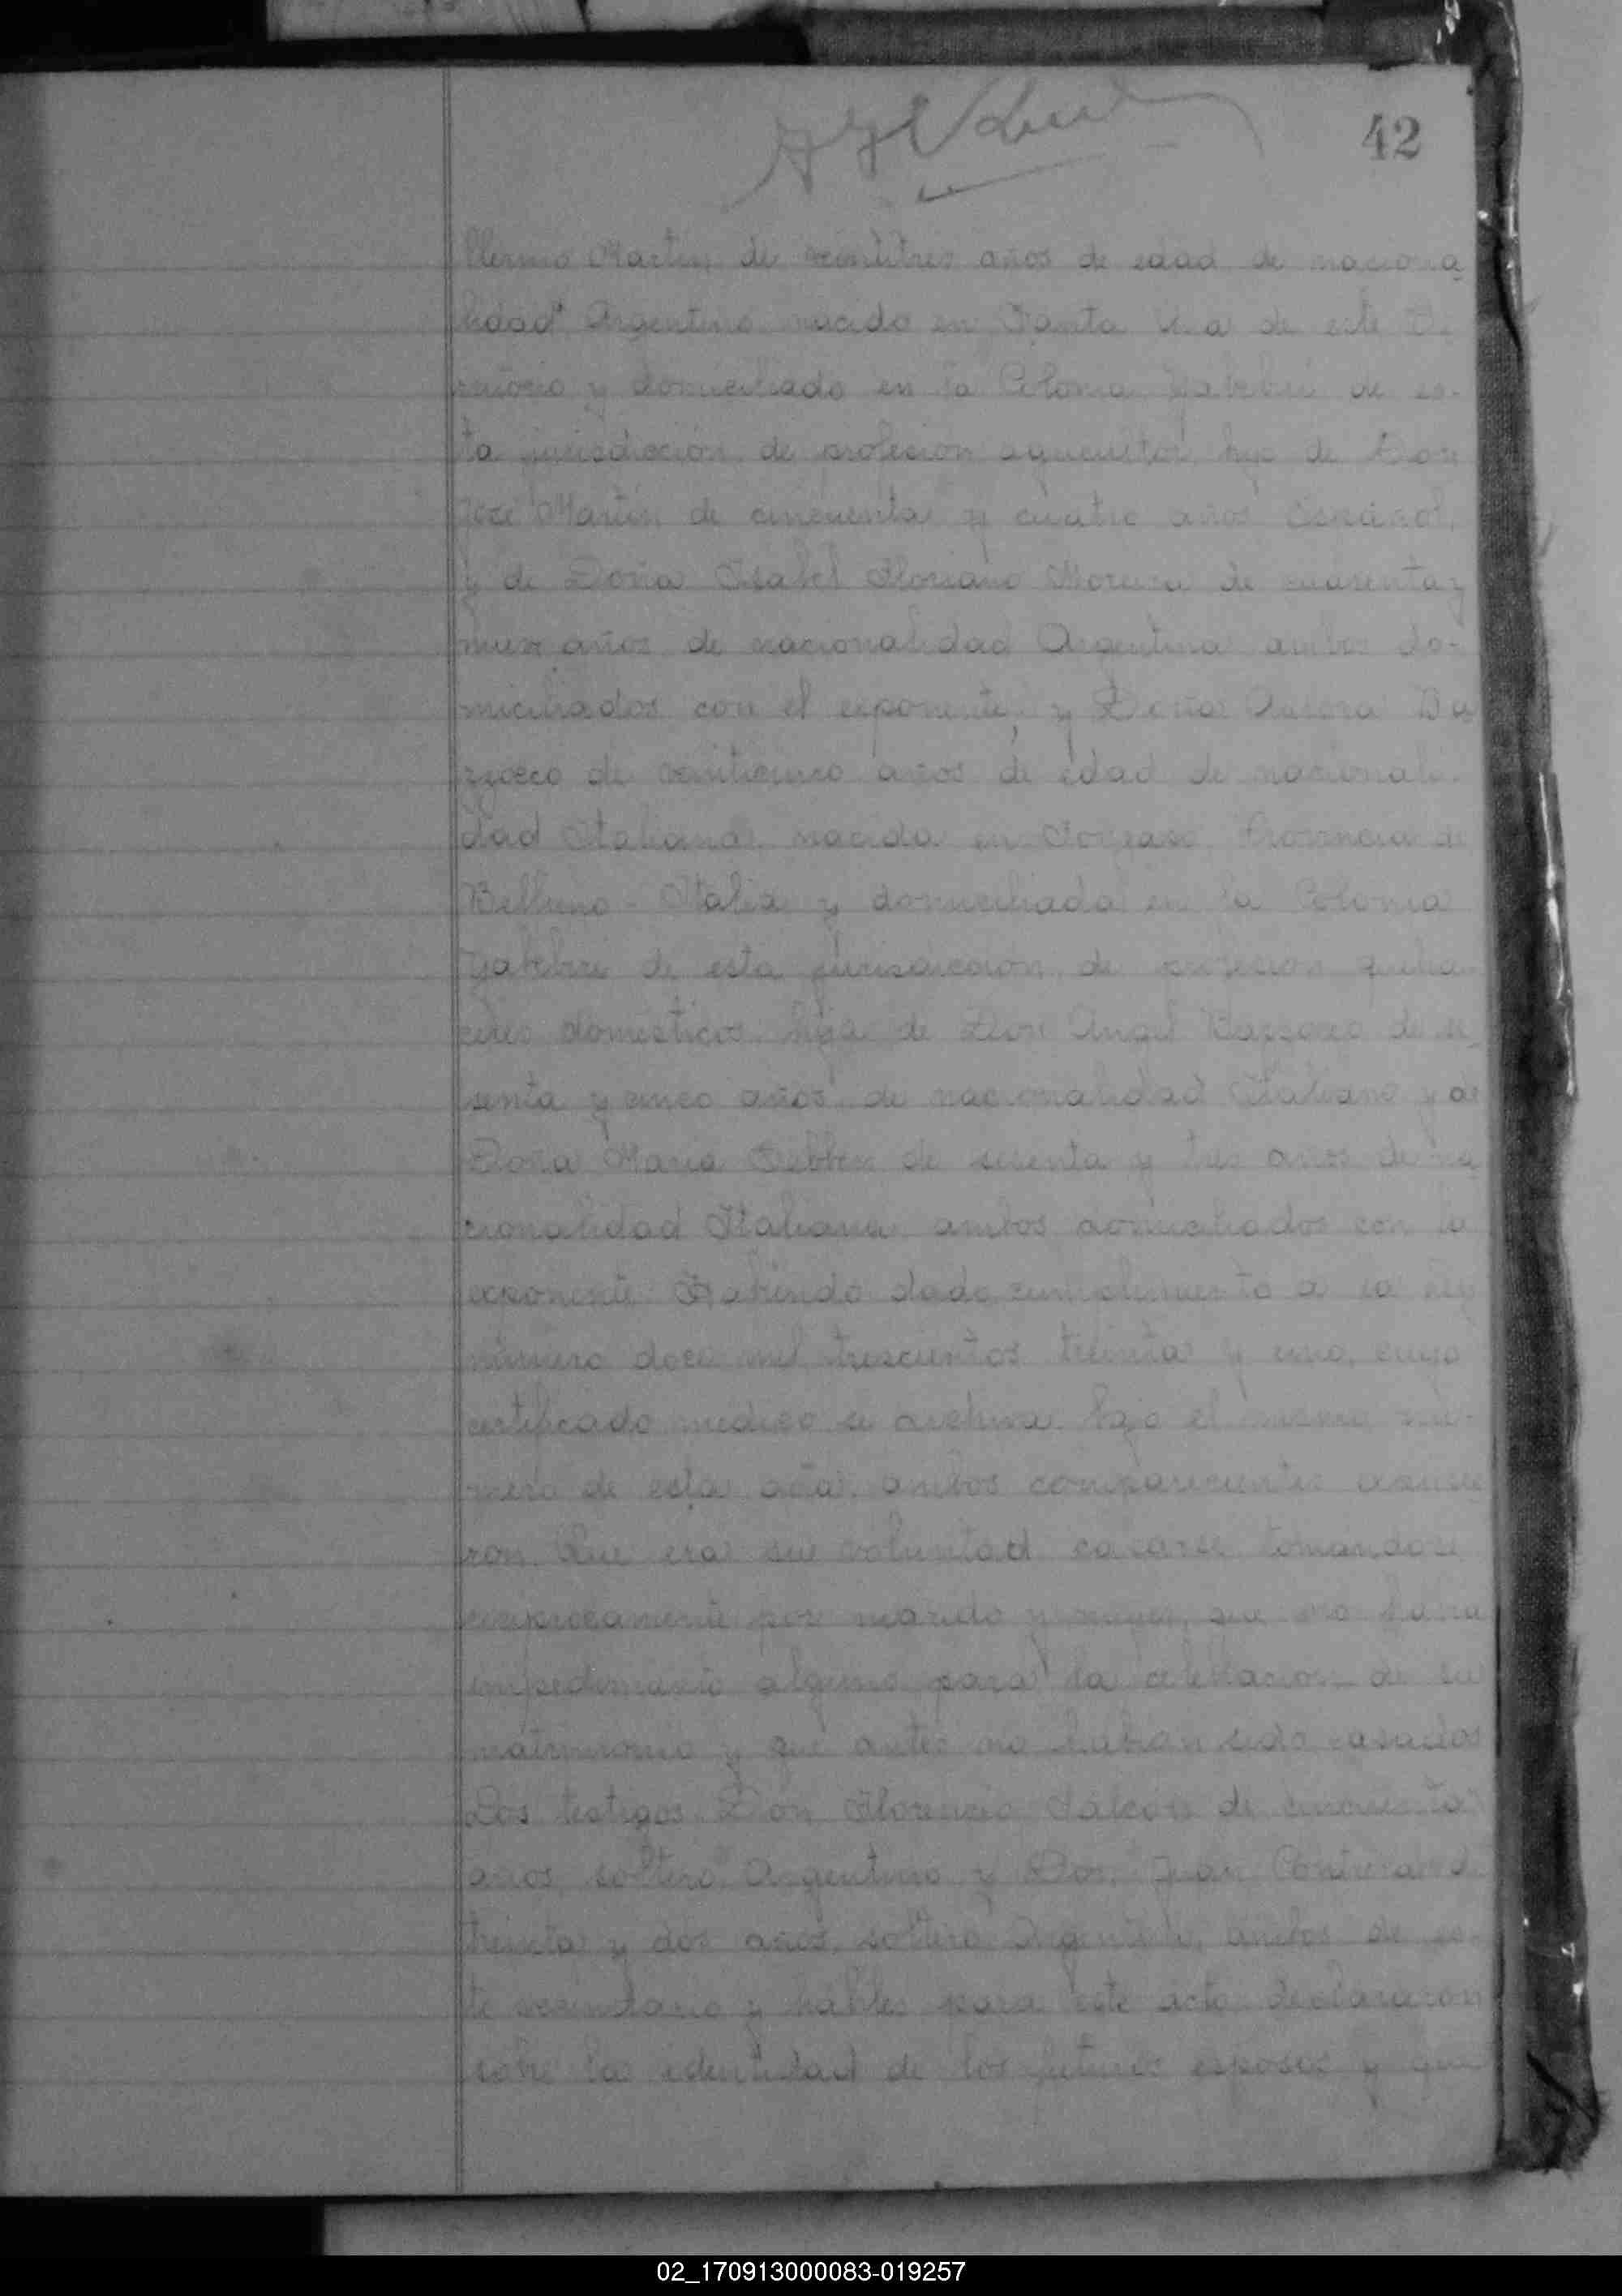 42
llermo Martin, de veintitres años de edad de naciona
lidad Argentino nacido en Santa de este
y domiciliado en la Colonia Yabebiri de es-
ta jurisdicción, de profesion agricultor, hijo de Don
José Martin de cincuenta y cuatro años Español,
y de Doña Isabel Floriano Moreira de cuarenta y
nueve años de nacionalidad Argentina ambos do-
miciliados con el exponente, y Doña Aurora Ba
zzocco de veinticinco años de edad de nacionali-
dad Italiana nacida en Provincia de
Belluno - Italia y domiciliada en la Colonia
Yabebiri de esta jurisdiccion, de profesion queha
ceres domesticos, hija de Don Angel Bazzocco de se
senta y cinco años de nacionalidad Italiano y de
Doña Maria de sesenta y tres años de na
cionalidad Italiana ambos domiciliados con la
exponente. Habiendo dado cumplimiento a la ley
número doce mil trescientos treinta y uno, cuyo
certificado medico se archiva bajo el mismo nú-
mero de esta acta, ambos comparecientes
ron Que era su voluntad casarse tomandose
reciprocamente por marido y mujer, que no habia
impedimento alguno para la celebracion de su
matrimonio y que antes no habian sido casados
Los testigos Don Florencio Falcón de cincuenta
años, soltero, Argentino y Don Juan Contrera de
treinta y dos años, soltero Argentino, ambos de es-
te vecindario y habiles para este acto declararon
sobre la identidad de los futuros esposos y que
02_170913000083-019257